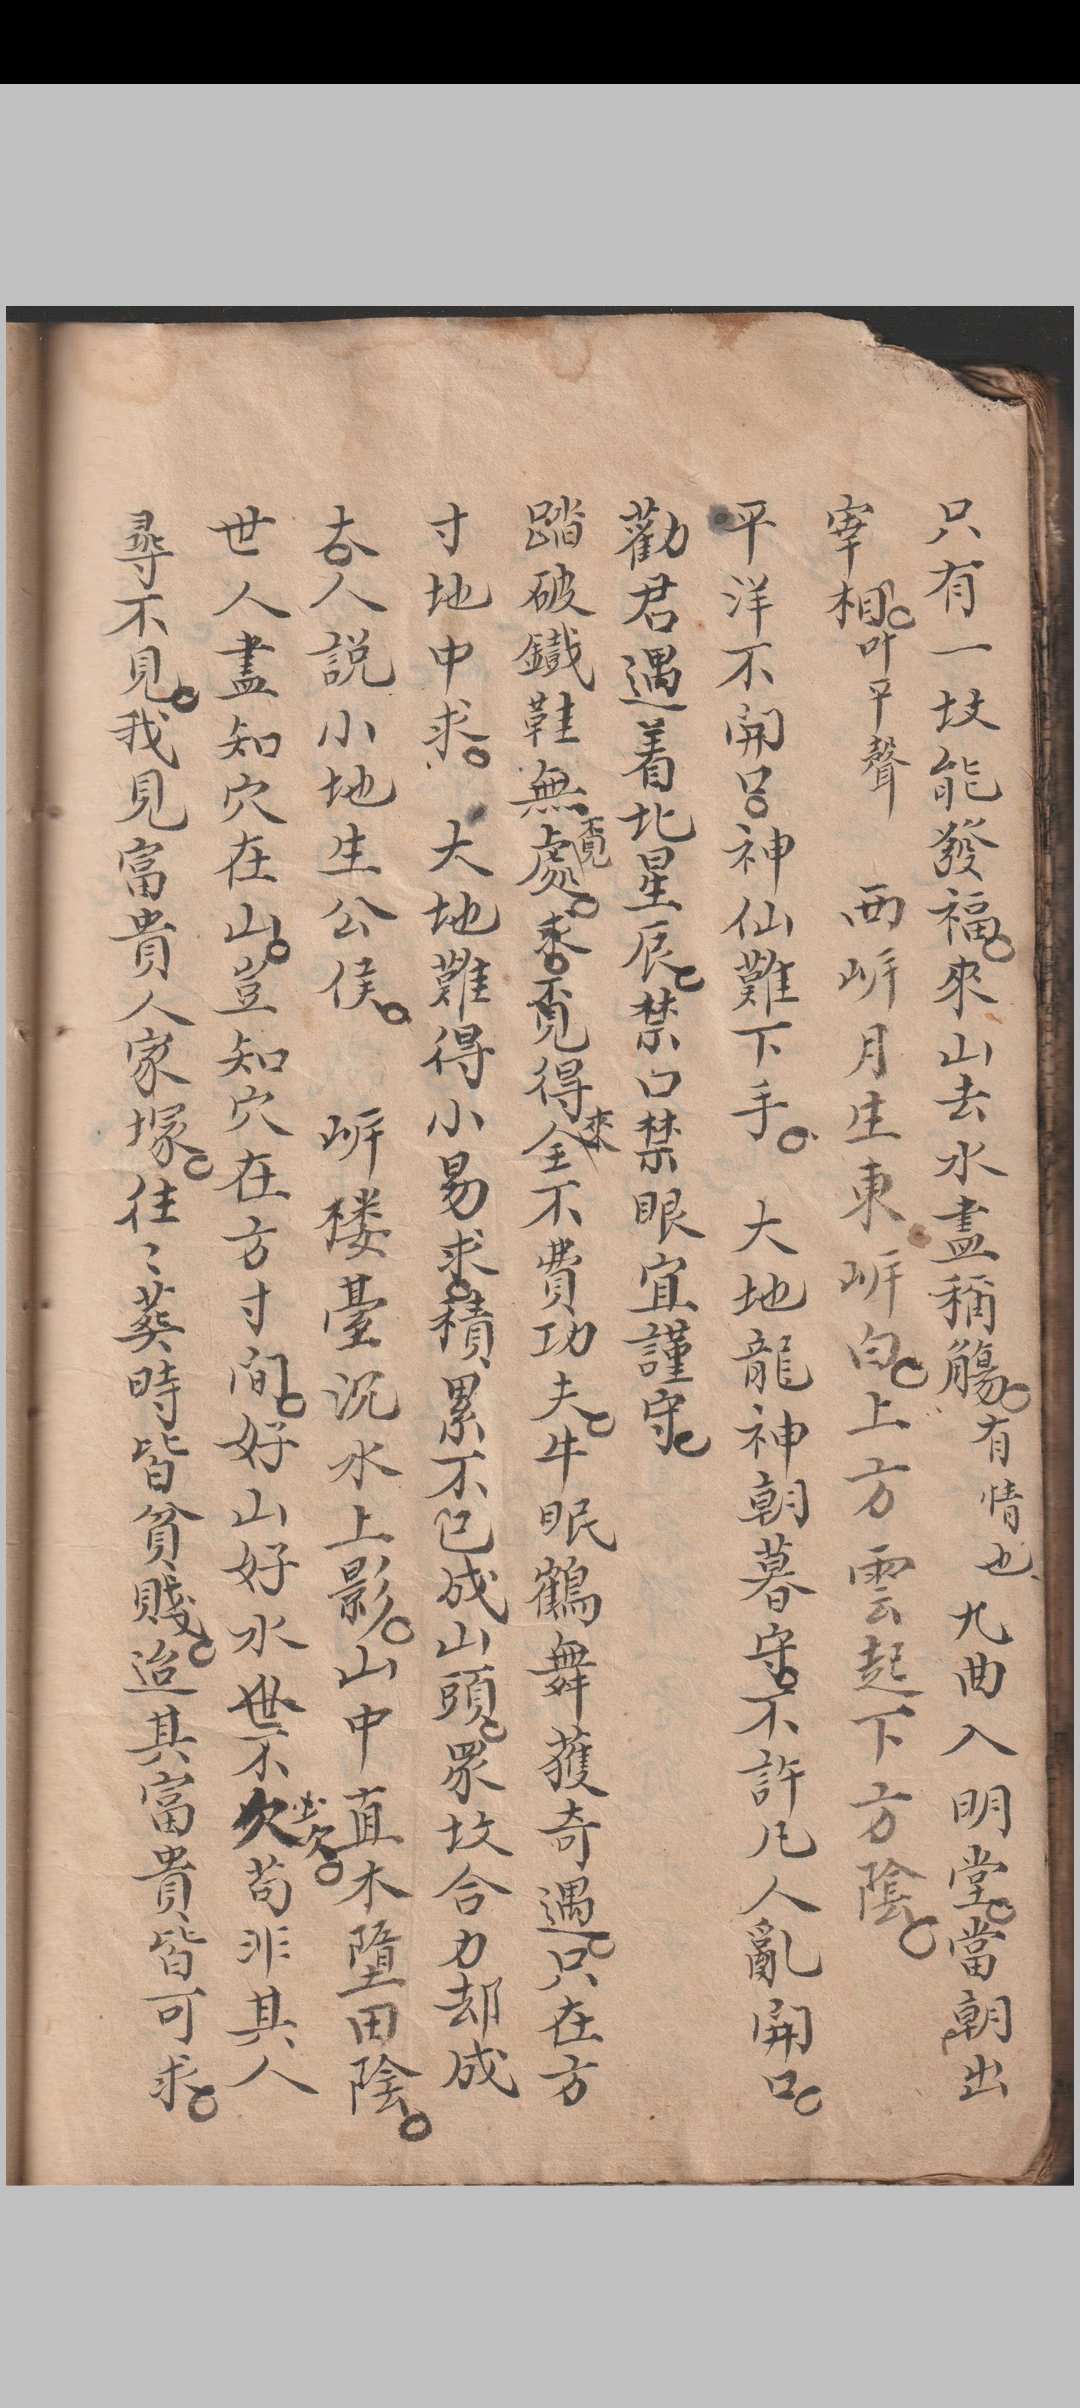 只有一坟能發福。來山去水盡稱觴。有情也、九曲入明堂。當朝出
宰相。叶平聲 西岍月生東岍白。上方雲起下方陰。
平洋不開口。神仙難下手。 大地龍神朝暮守。不許凡人亂開口。
勸君遇着北星辰。禁口禁眼宜謹守。
踏破鐵鞋無覓處。來覓得來全不費功夫。牛眠鶴舞獲奇遇。只在方
寸地中求。 大地難得小易求。積累不已成山頭。眾坟合力却成
大。人説小地生公侯。 岍楼臺沉水上影。山中直木墮田陰。
世人盡知穴在山。豈知穴在方寸間。好山好水世不欠。苟非其人
尋不見。我見富貴人家塚。往〻葬時皆貧賤。迨其富貴皆可求。